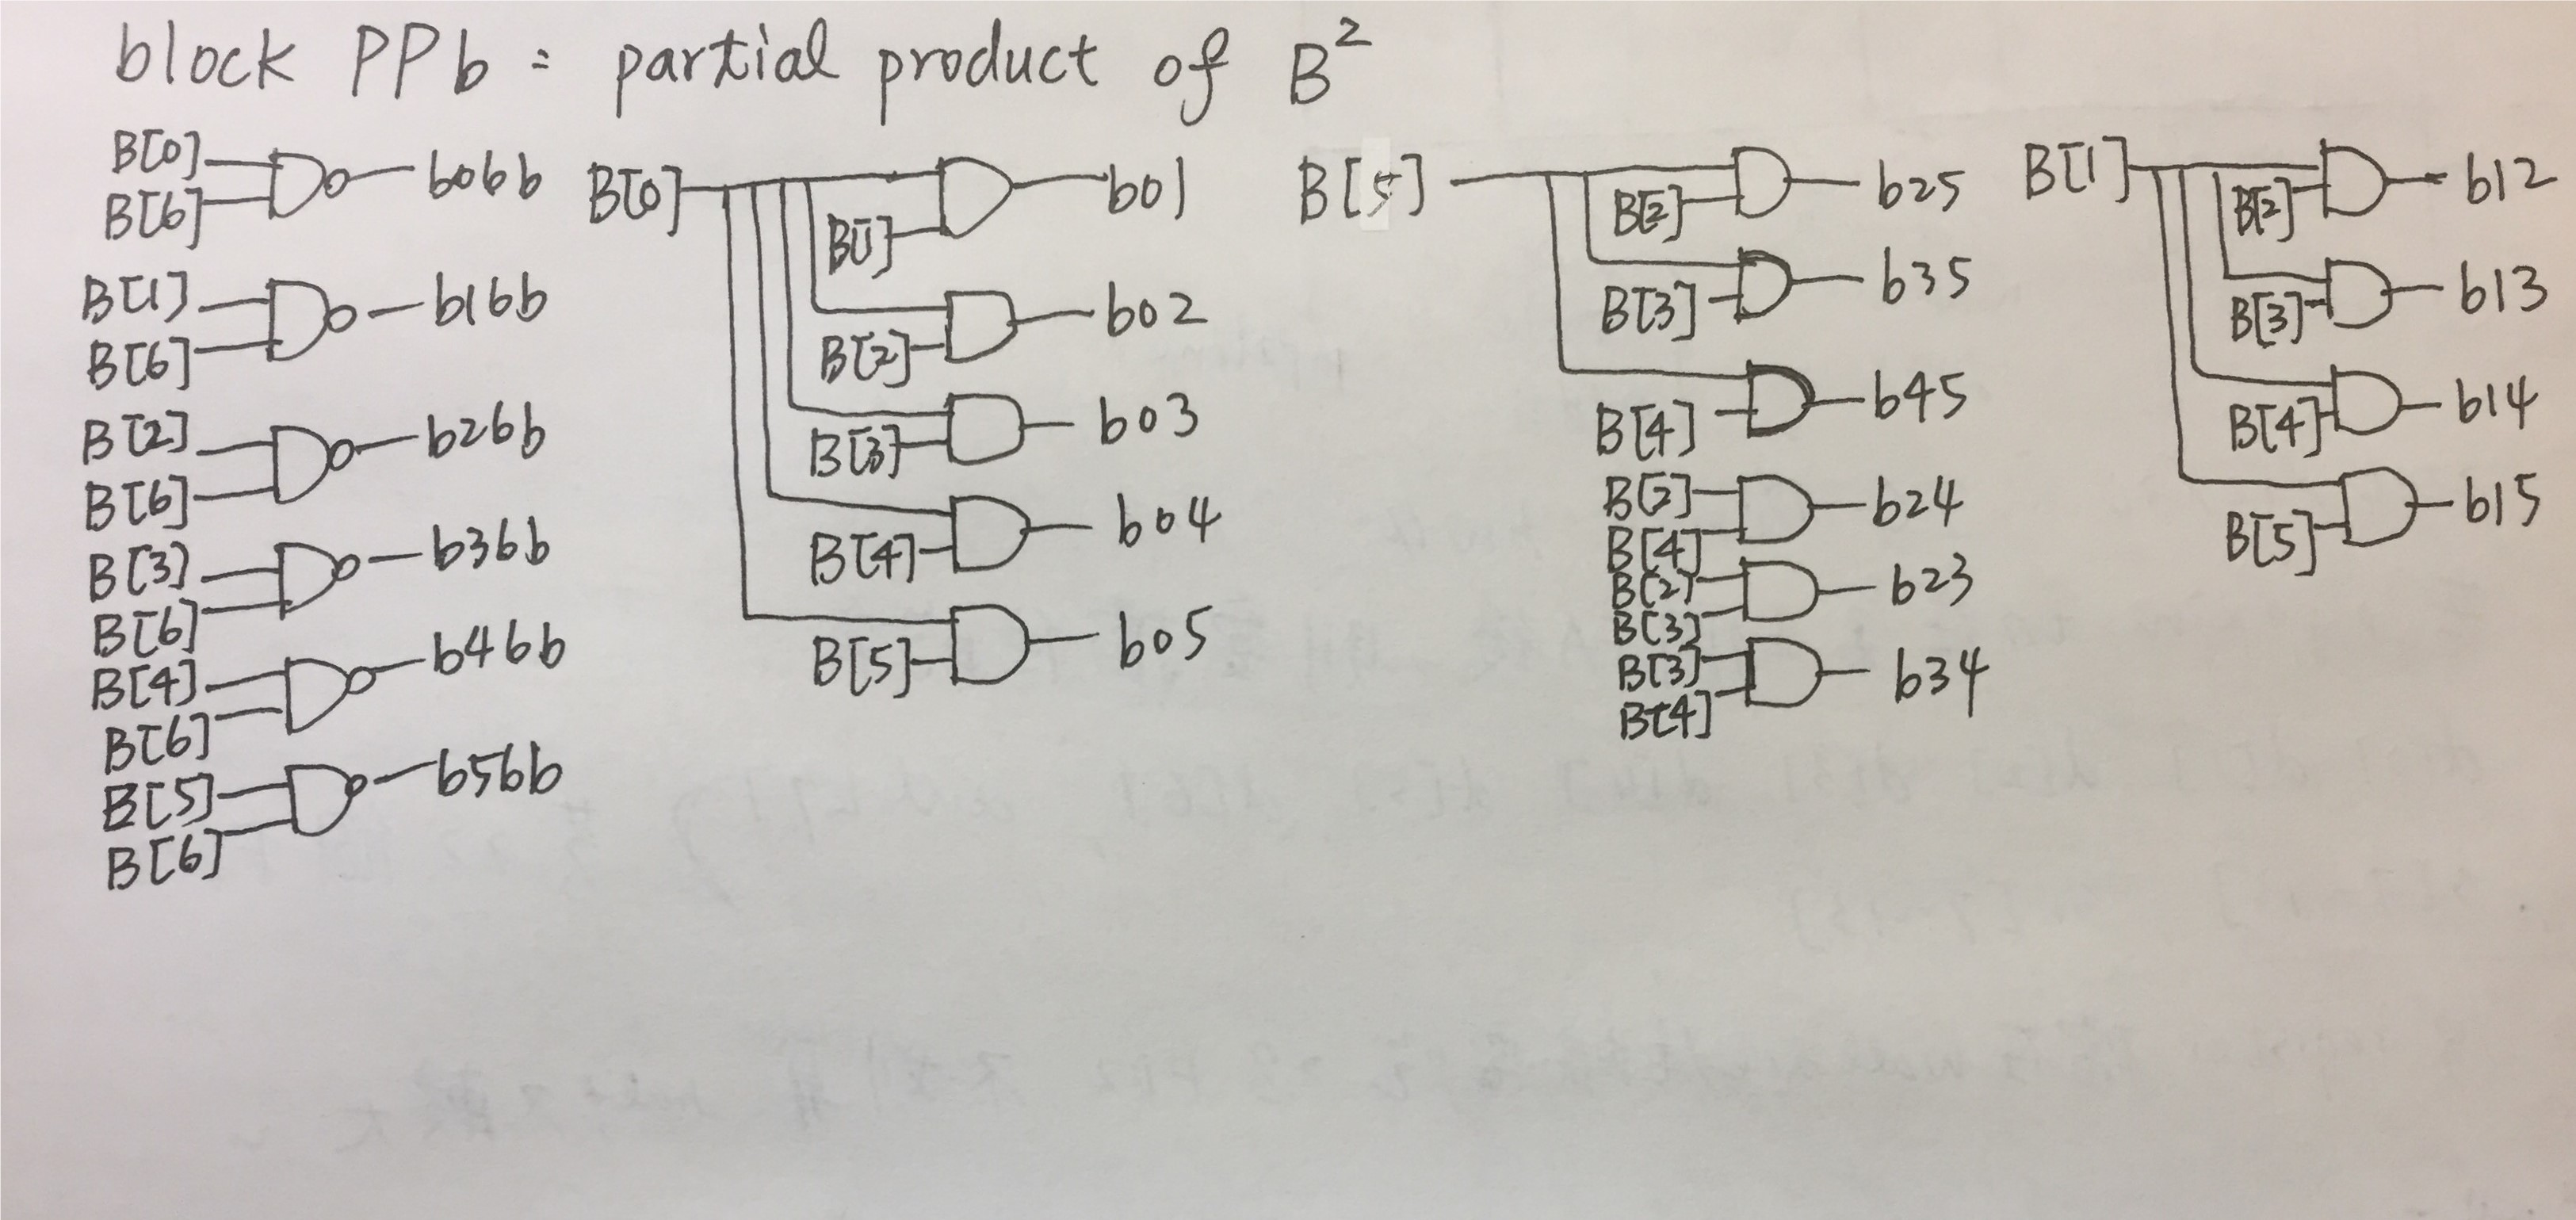 block PPb = partial product of B²
B[0]
B[6]
b06b
B[1]
B[6]
b16b
B[2]
B[6]
b26b
B[3]
B[6]
b36b
B[4]
B[6]
b46b
B[5]
B[6]
b56b
B[0]
B[1]
b01
B[2]
b02
B[3]
b03
B[4]
b04
B[5]
b05
B[5]
B[2]
b25
B[3]
b35
B[4]
b45
B[2]
B[4]
b24
B[2]
B[3]
b23
B[3]
B[4]
b34
B[1]
B[2]
b12
B[3]
b13
B[4]
b14
B[5]
b15